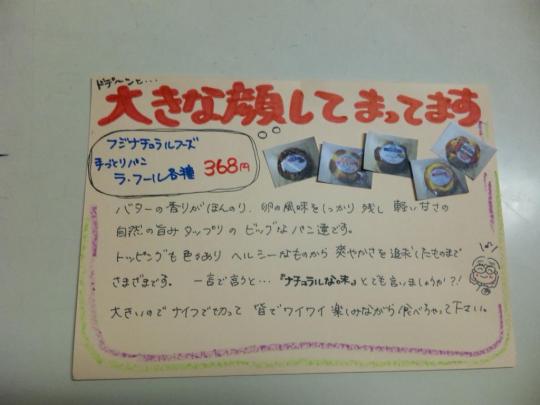 ドデ〜ンと…
大きな顔してまってます
フジナチュラルフーズ
手づくりパン
ラ・フール各種 368円
バターの香りがほんのり、卵の風味をしっかり残し 軽い甘さの
自然の旨みタップリの ビッグなパン達です。
トッピングも色々あり ヘルシーなものから 爽やかさを追求したものまで
さまざまです。 一言で言うと… 『ナチュラルな味』とでも言いましょうか?!
大きいのでナイフで切って 皆でワイワイ 楽しみながら食べちゃって下さい。